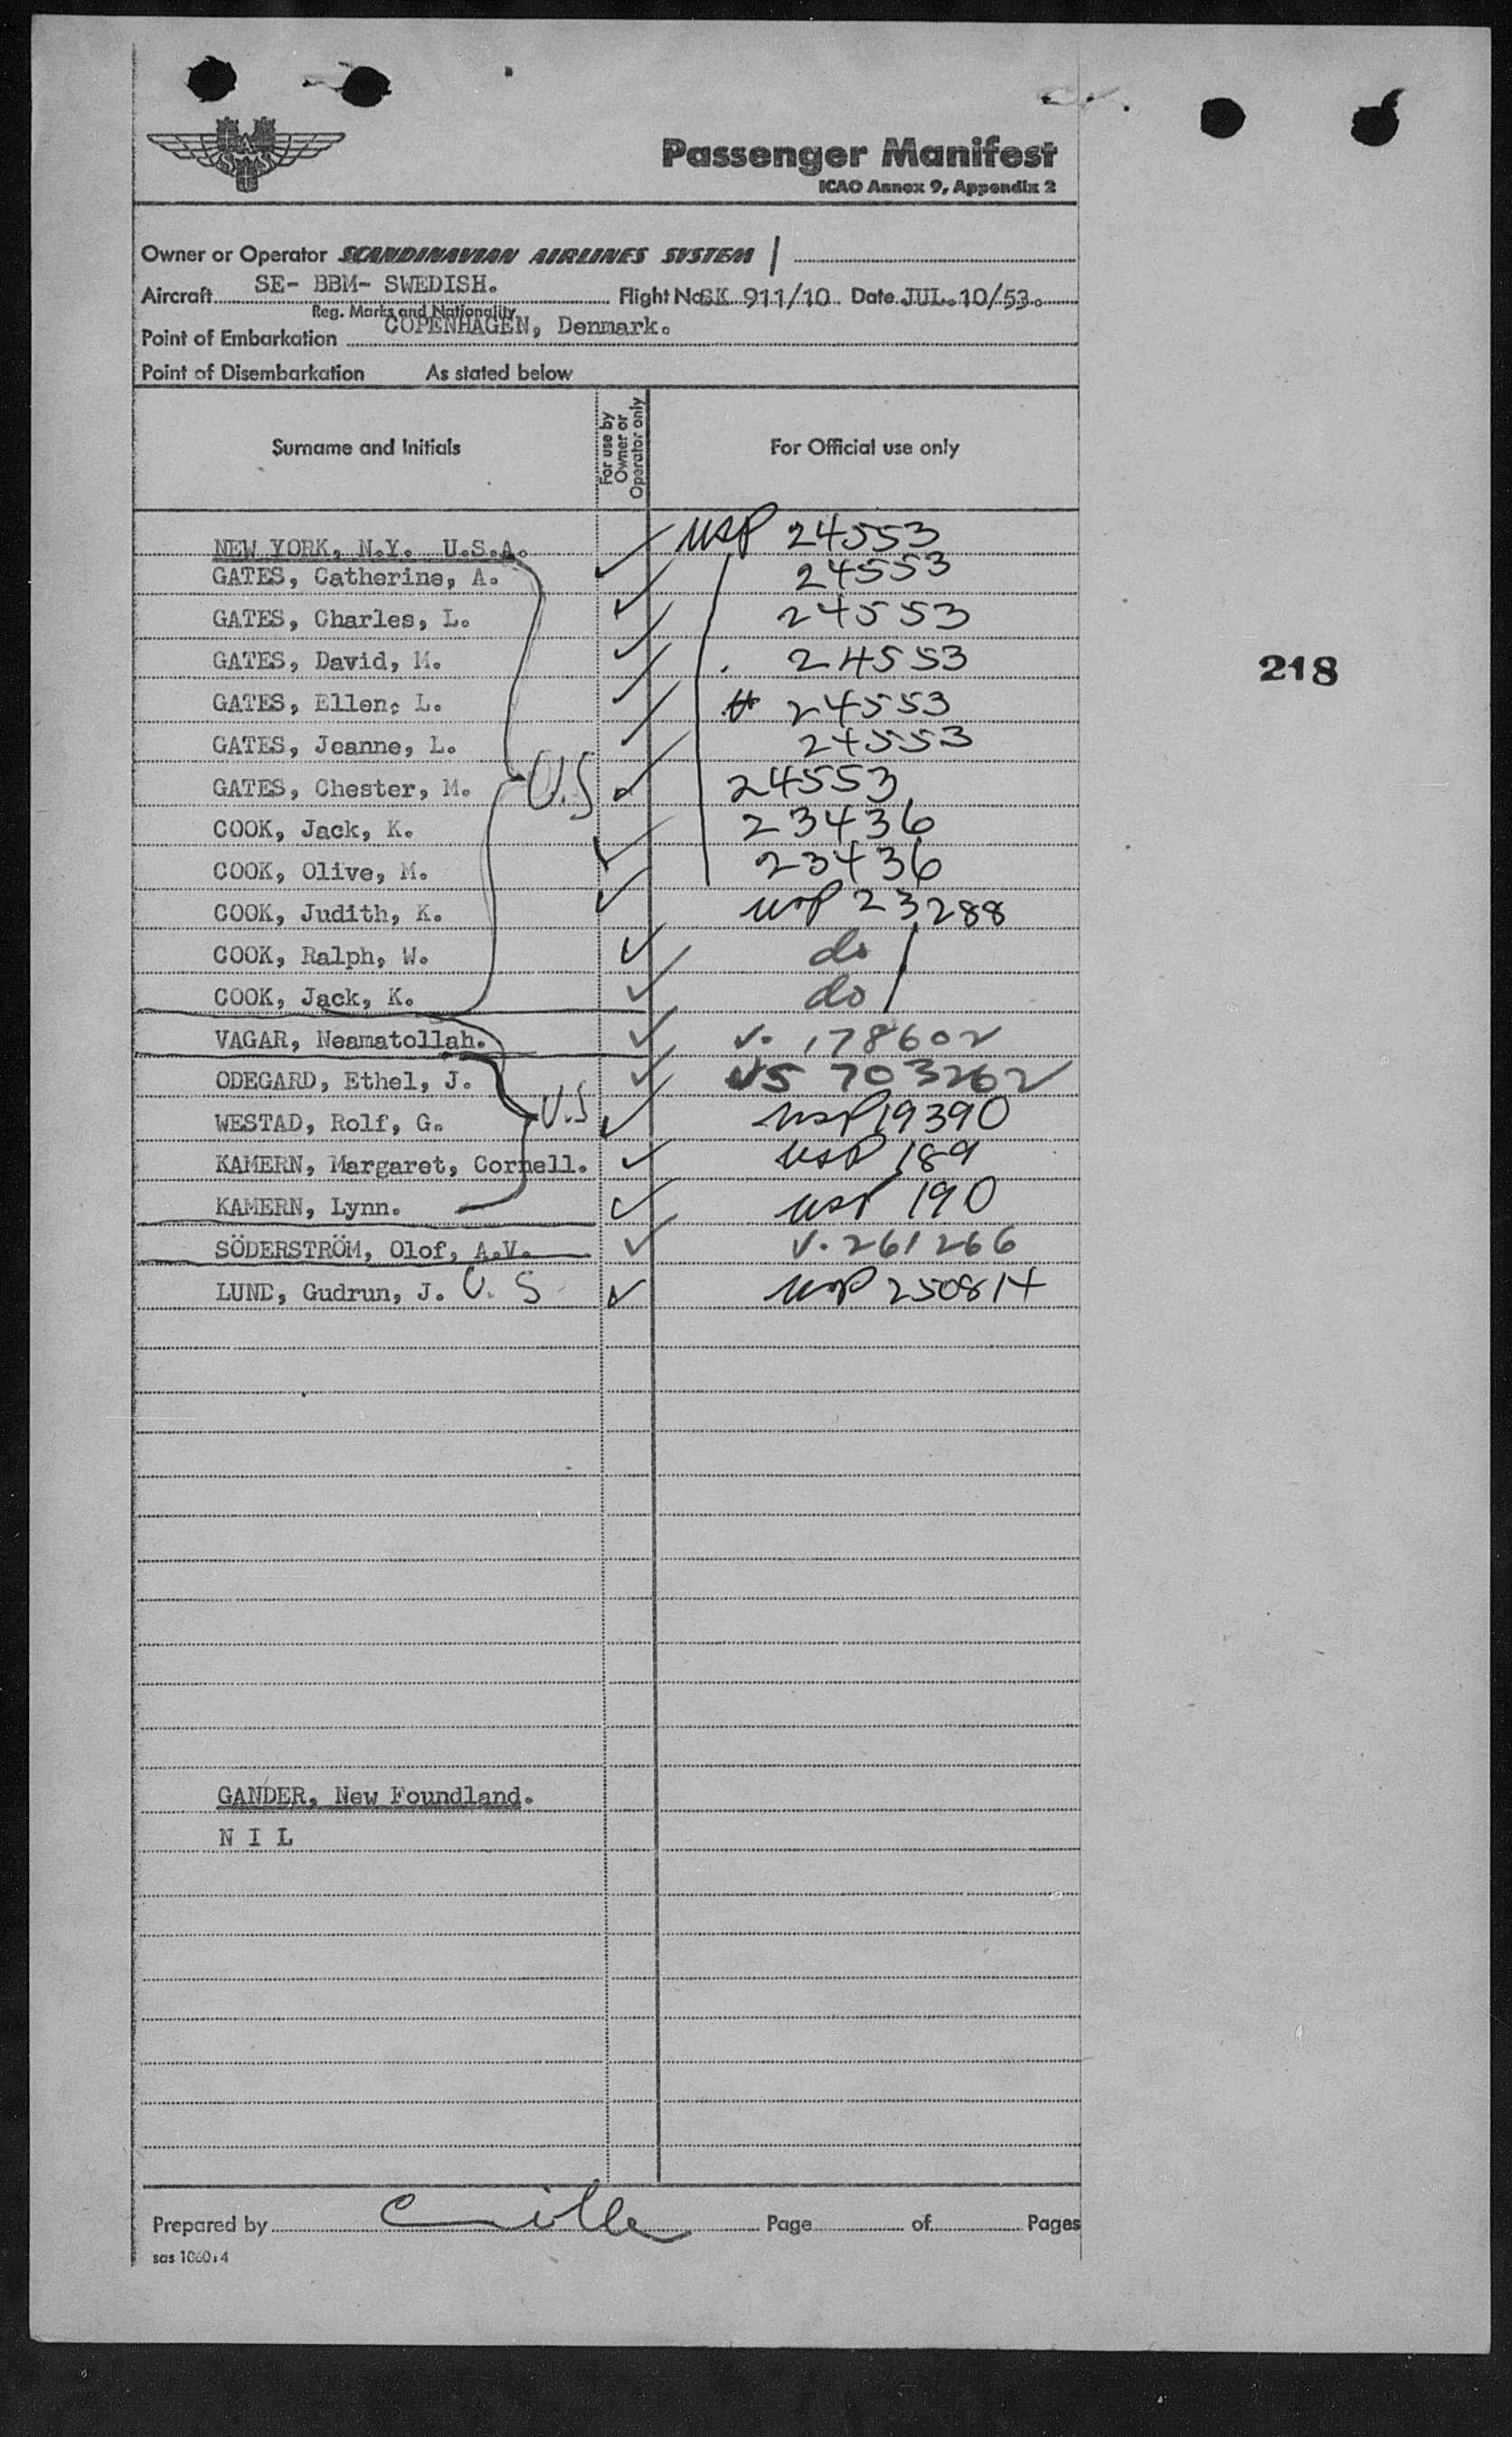 SAS
Passenger Manifest
ICAO Annex 9, Appendix 2
Owner or Operator SCANDINAVIAN AIRLINES SYSTEM
Aircraft SE- BBM- SWEDISH. Flight No. SK 911/10 Date JUL.10/53.
Reg. Marks and Nationality
Point of Embarkation COPENHAGEN, Denmark.
Point of Disembarkation As stated below
Surname and Initials For use by Owner or Operator only For Official use only
NEW YORK, N.Y. U.S.A. USP 24553
GATES, Catherine, A. 24553
GATES, Charles, L. 24553
GATES, David, M. 24553
218
GATES, Ellen, L. 24553
GATES, Jeanne, L. 24553
GATES, Chester, M. U.S 24553
COOK, Jack, K. 23436
COOK, Olive, M. 23436
COOK, Judith, K. USP 23288
COOK, Ralph, W. do
COOK, Jack, K. do
VAGAR, Neamatollah. V. 178602
ODEGARD, Ethel, J. US 703262
WESTAD, Rolf, G. U.S USP 19390
KAMERN, Margaret, Cornell. USP 189
KAMERN, Lynn. USP 190
SÖDERSTRÖM, Olof, A.V. V. 261266
LUND, Gudrun, J. U.S USP 250814
GANDER, New Foundland.
N I L
Prepared by Page of Pages
sas 1060:4